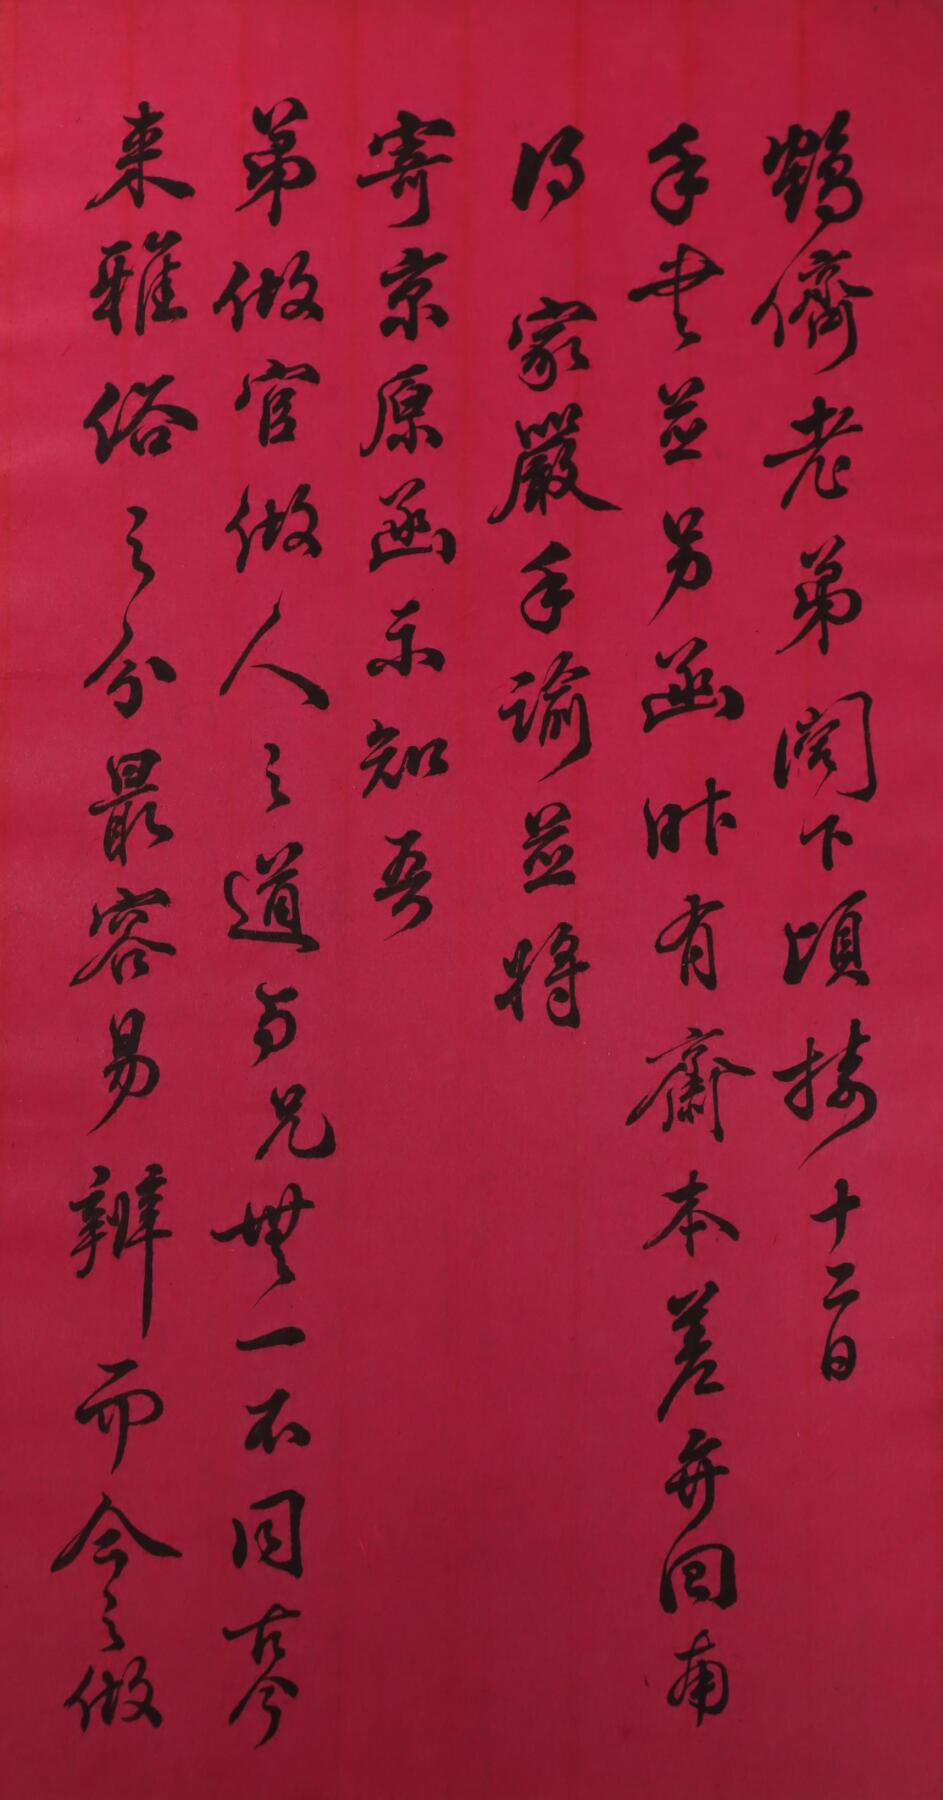 鶴儕老弟閣下頃接十二日
手書並另函昨有齋本差弁回南
得家嚴手諭並將
寄京原函示知吾
弟做官做人之道與兄無一不同古今
來雅俗之分最容易辨而今之做